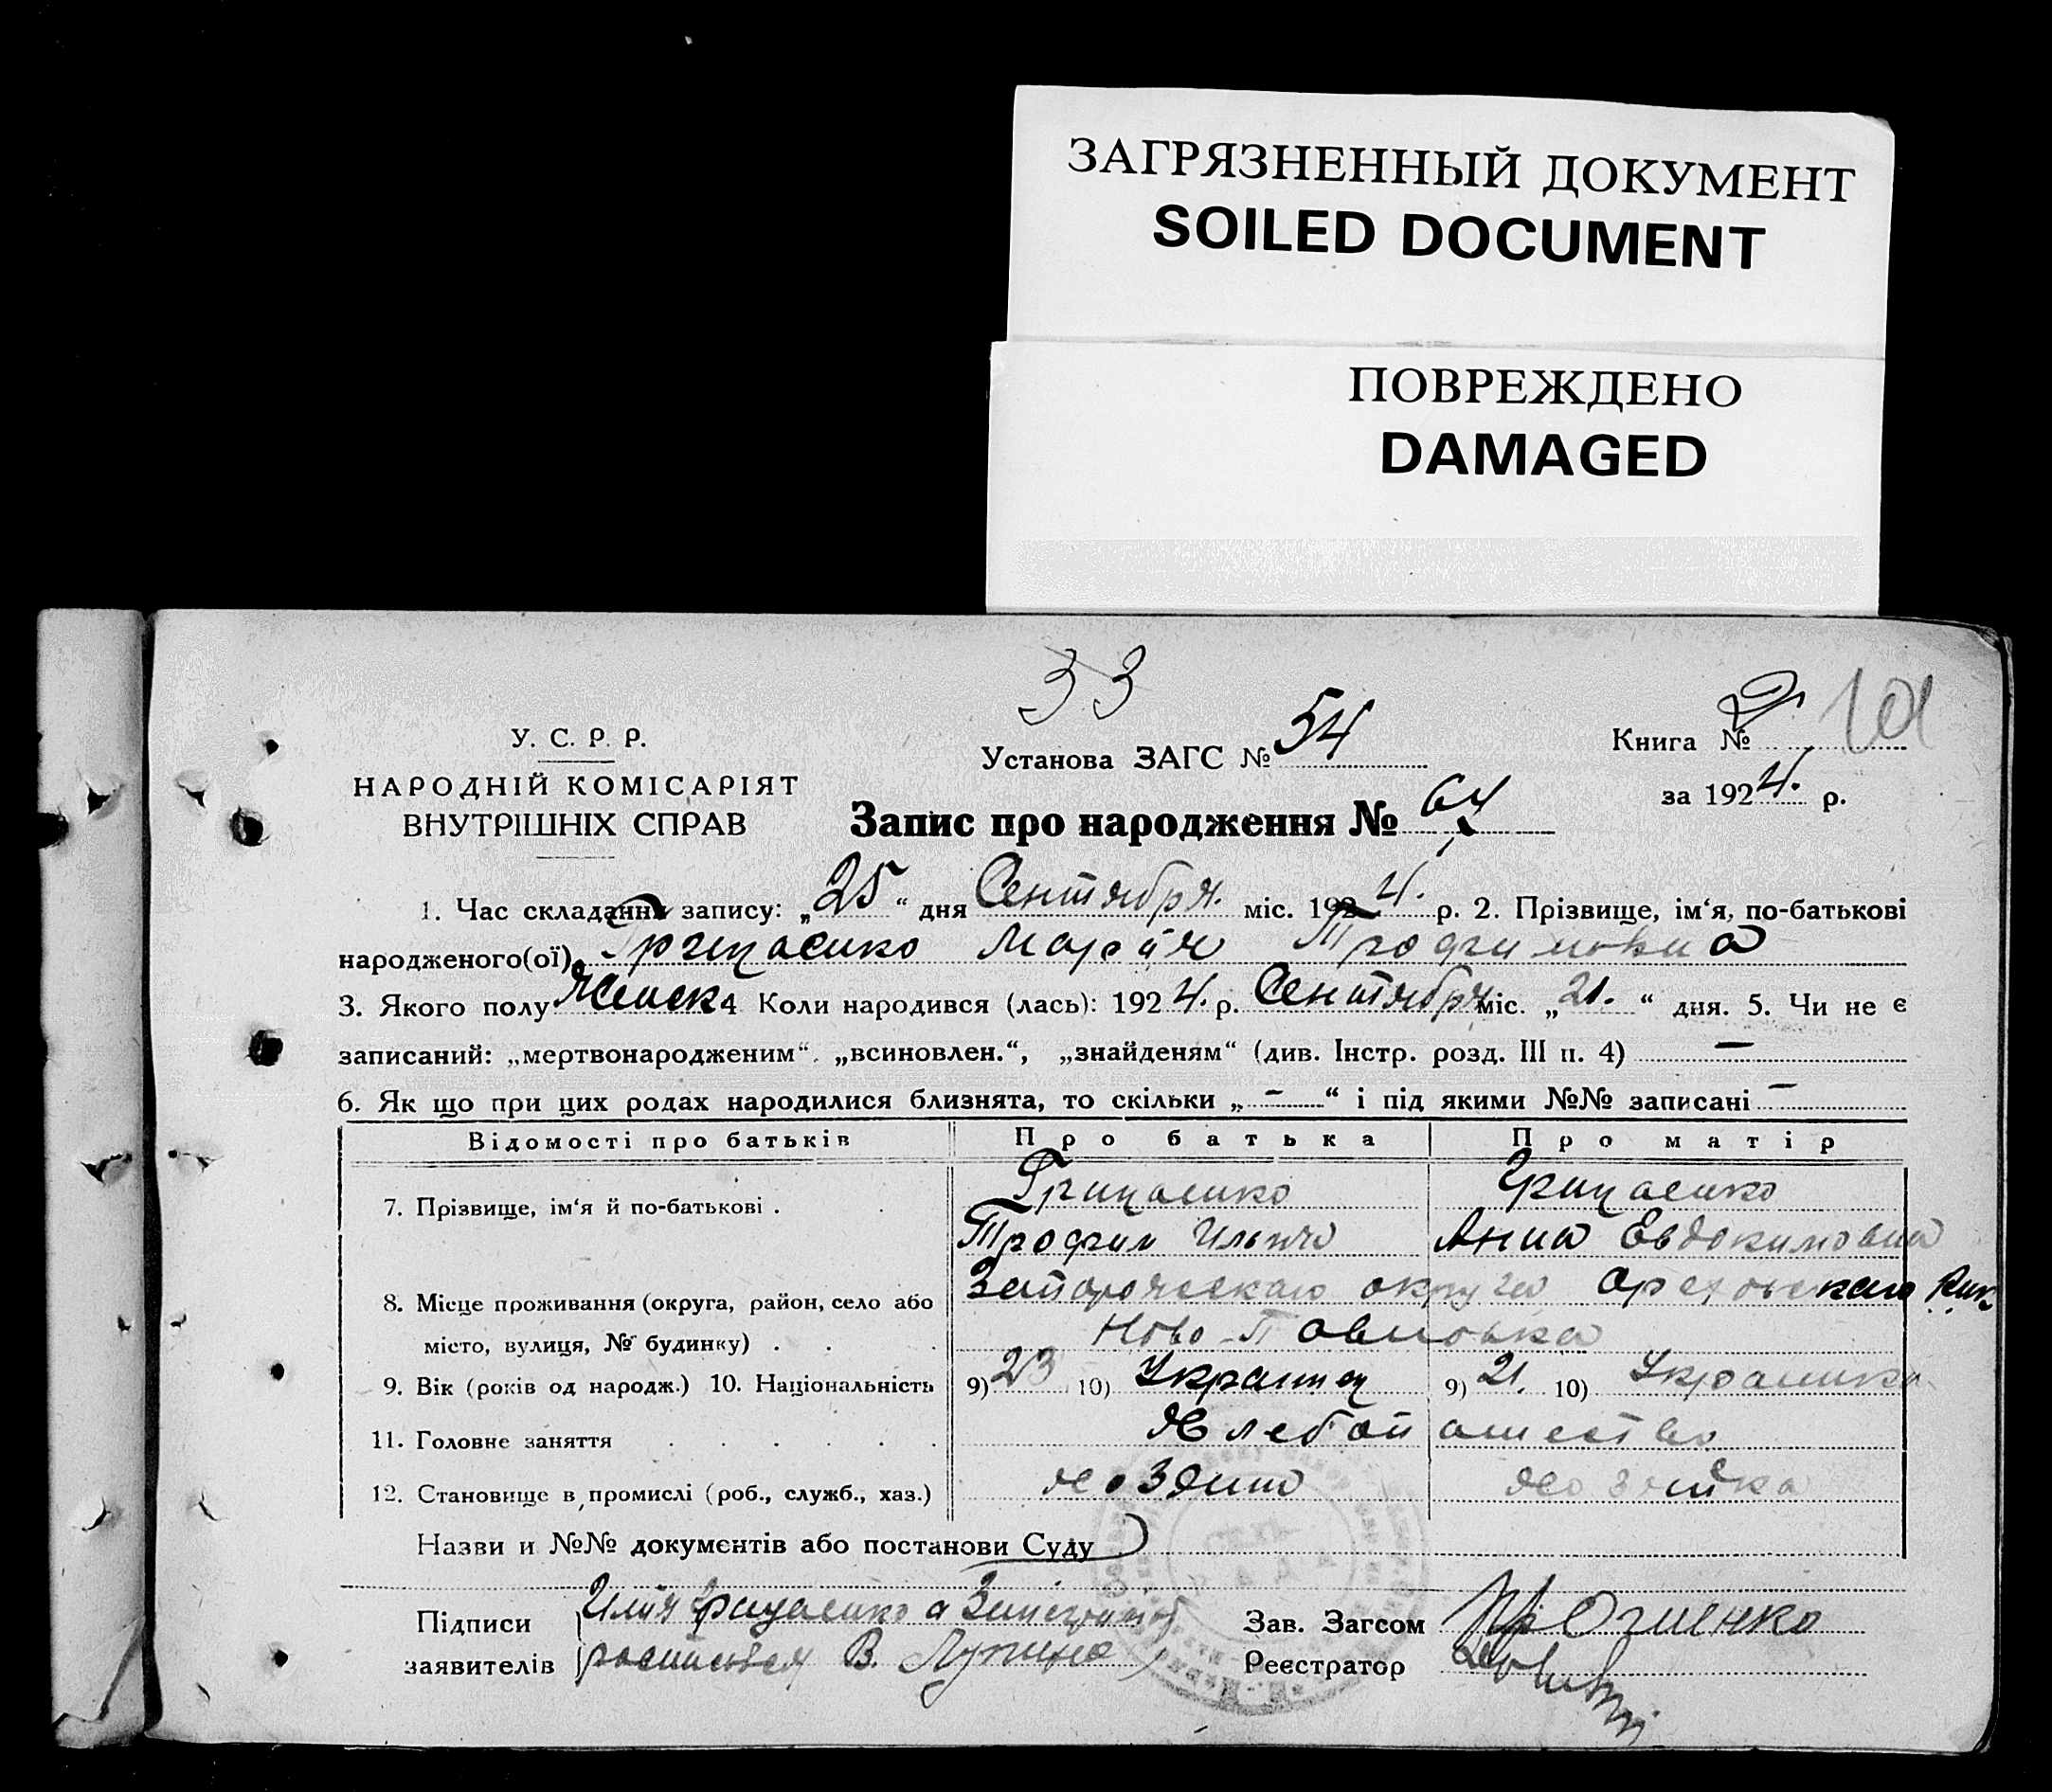 ЗАГРЯЗНЕННЫЙ ДОКУМЕНТ
SOILED DOCUMENT
ПОВРЕЖДЕНО
DAMAGED
33
У. С. Р. Р.
Установа ЗАГС № 54
Книга №
НАРОДНІЙ КОМІСАРІЯТ
за 1924. р.
ВНУТРІШНІХ СПРАВ
Запис про народження № 64
1. Час складання запису: „25“ дня Сентября. міс. 1924. р. 2. Прізвище, ім‘я, по-батькові
народженого(ої) Грицаенко Мария Трофимовна
3. Якого полу Женск 4 Коли народився (лась): 1924. р. Сентября міс. „21.“ дня. 5. Чи не є
записаний: „мертвонародженим“. „всиновлен.“, „знайденям“ (див. Інстр. розд. III п. 4) —
6. Як що при цих родах народилися близнята, то скільки „ - “ і під якими №№ записані —
Відомості про батьків Про батька Про матір
7. Прізвище, ім‘я й по-батькові . Грицаенко Грицаенко
Трофим Ильич Анна Евдокимовна
8. Місце проживання (округа, район, село або Запорожскаго округа Ореховскаго Рик
місто, вулиця, № будинку) . . . Ново-Павловка
9. Вік (років од народж.) 10. Національність 9) 23 10) Украинец 9) 21. 10) Украинка
11. Головне заняття . . . . . . Хлебопашество
12. Становище в промислі (роб., служб., хаз.) хозяин хозяйка
Назви и №№ документів або постанови Суду
Підписи Илия Грицаенко а За
Зав. Загсом
заявителів росписався В.
Реєстратор